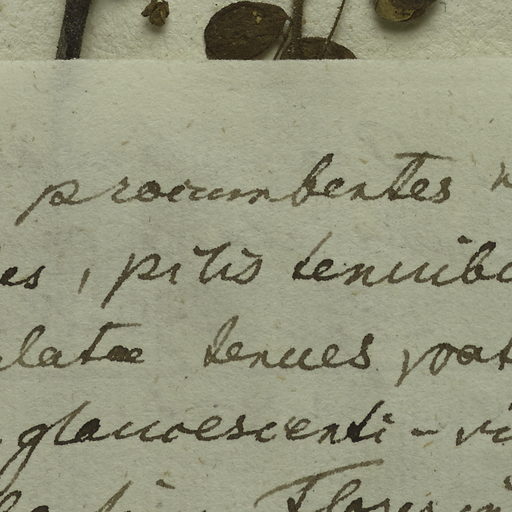 procumbentes
es, pilis tenuib
latae tenues pat
glaucescenti-vi
Flores